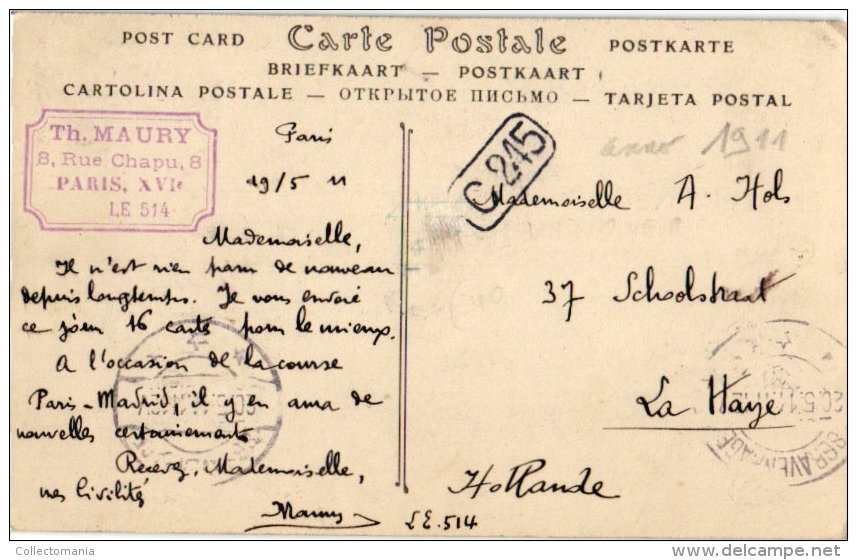 POST CARD Carte Postale POSTKARTE
BRIEFKAART — POSTKAART
CARTOLINA POSTALE — ОТКРЫТОЕ ПИСЬМО — TARJETA POSTAL
Th. MAURY
8, Rue Chapu, 8
PARIS, XVIe
LE 514
Paris
19/5 11
Mademoiselle,
Il n'est rien paru de nouveau
depuis longtemps. Je vous envoie
ce jour 16 carts pour le mieux.
A l'occasion de la course
Paris-Madrid, il y en aura de
nouvelles certainements
Recevez, Mademoiselle,
mes Civilités
Maury
LE.514
C 245
anno 1911
Mademoiselle A. Hols
37 Schoolstraat
La Haye
Hollande
Collectomania
www.delcampe.net